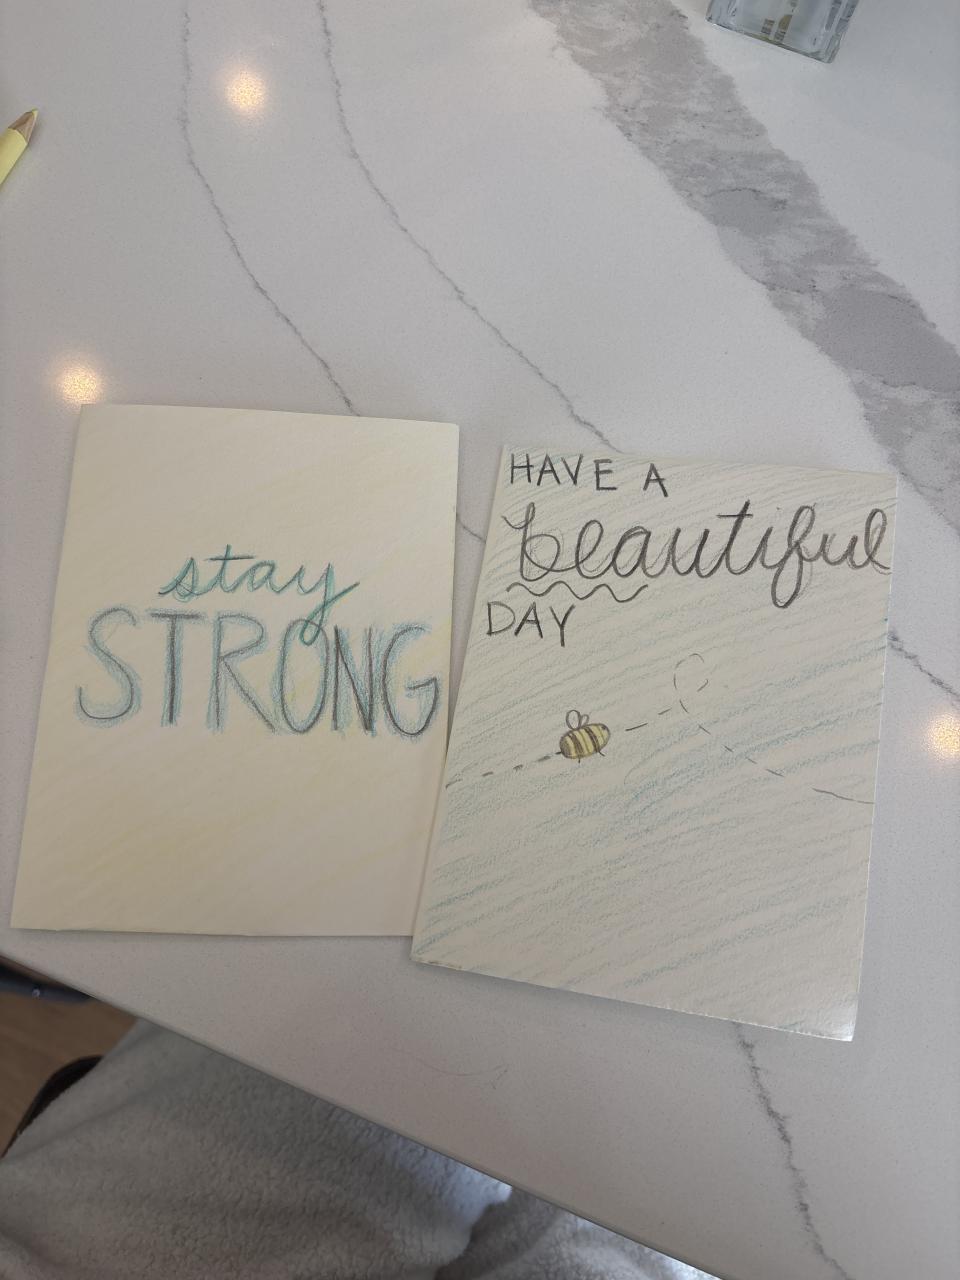 stay
STRONG
HAVE A
beautiful
DAY